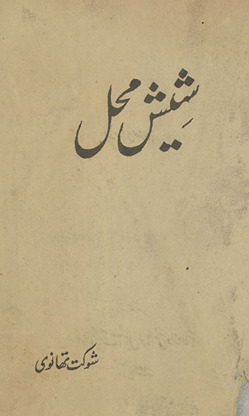 شیش محل
شوکت تھانوی